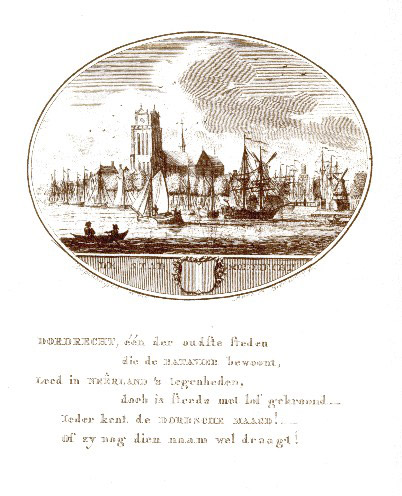 DE STAD DORDRECHT
DORDRECHT, één der oudste steden
die de BATAVIER bewoont,
Leed in NEÊRLAND 's tegenheden,
doch is steeds met lof gekroond.
Ieder kent de DORDSCHE MAAGD!
Of zy nog dien naam wel draagt!